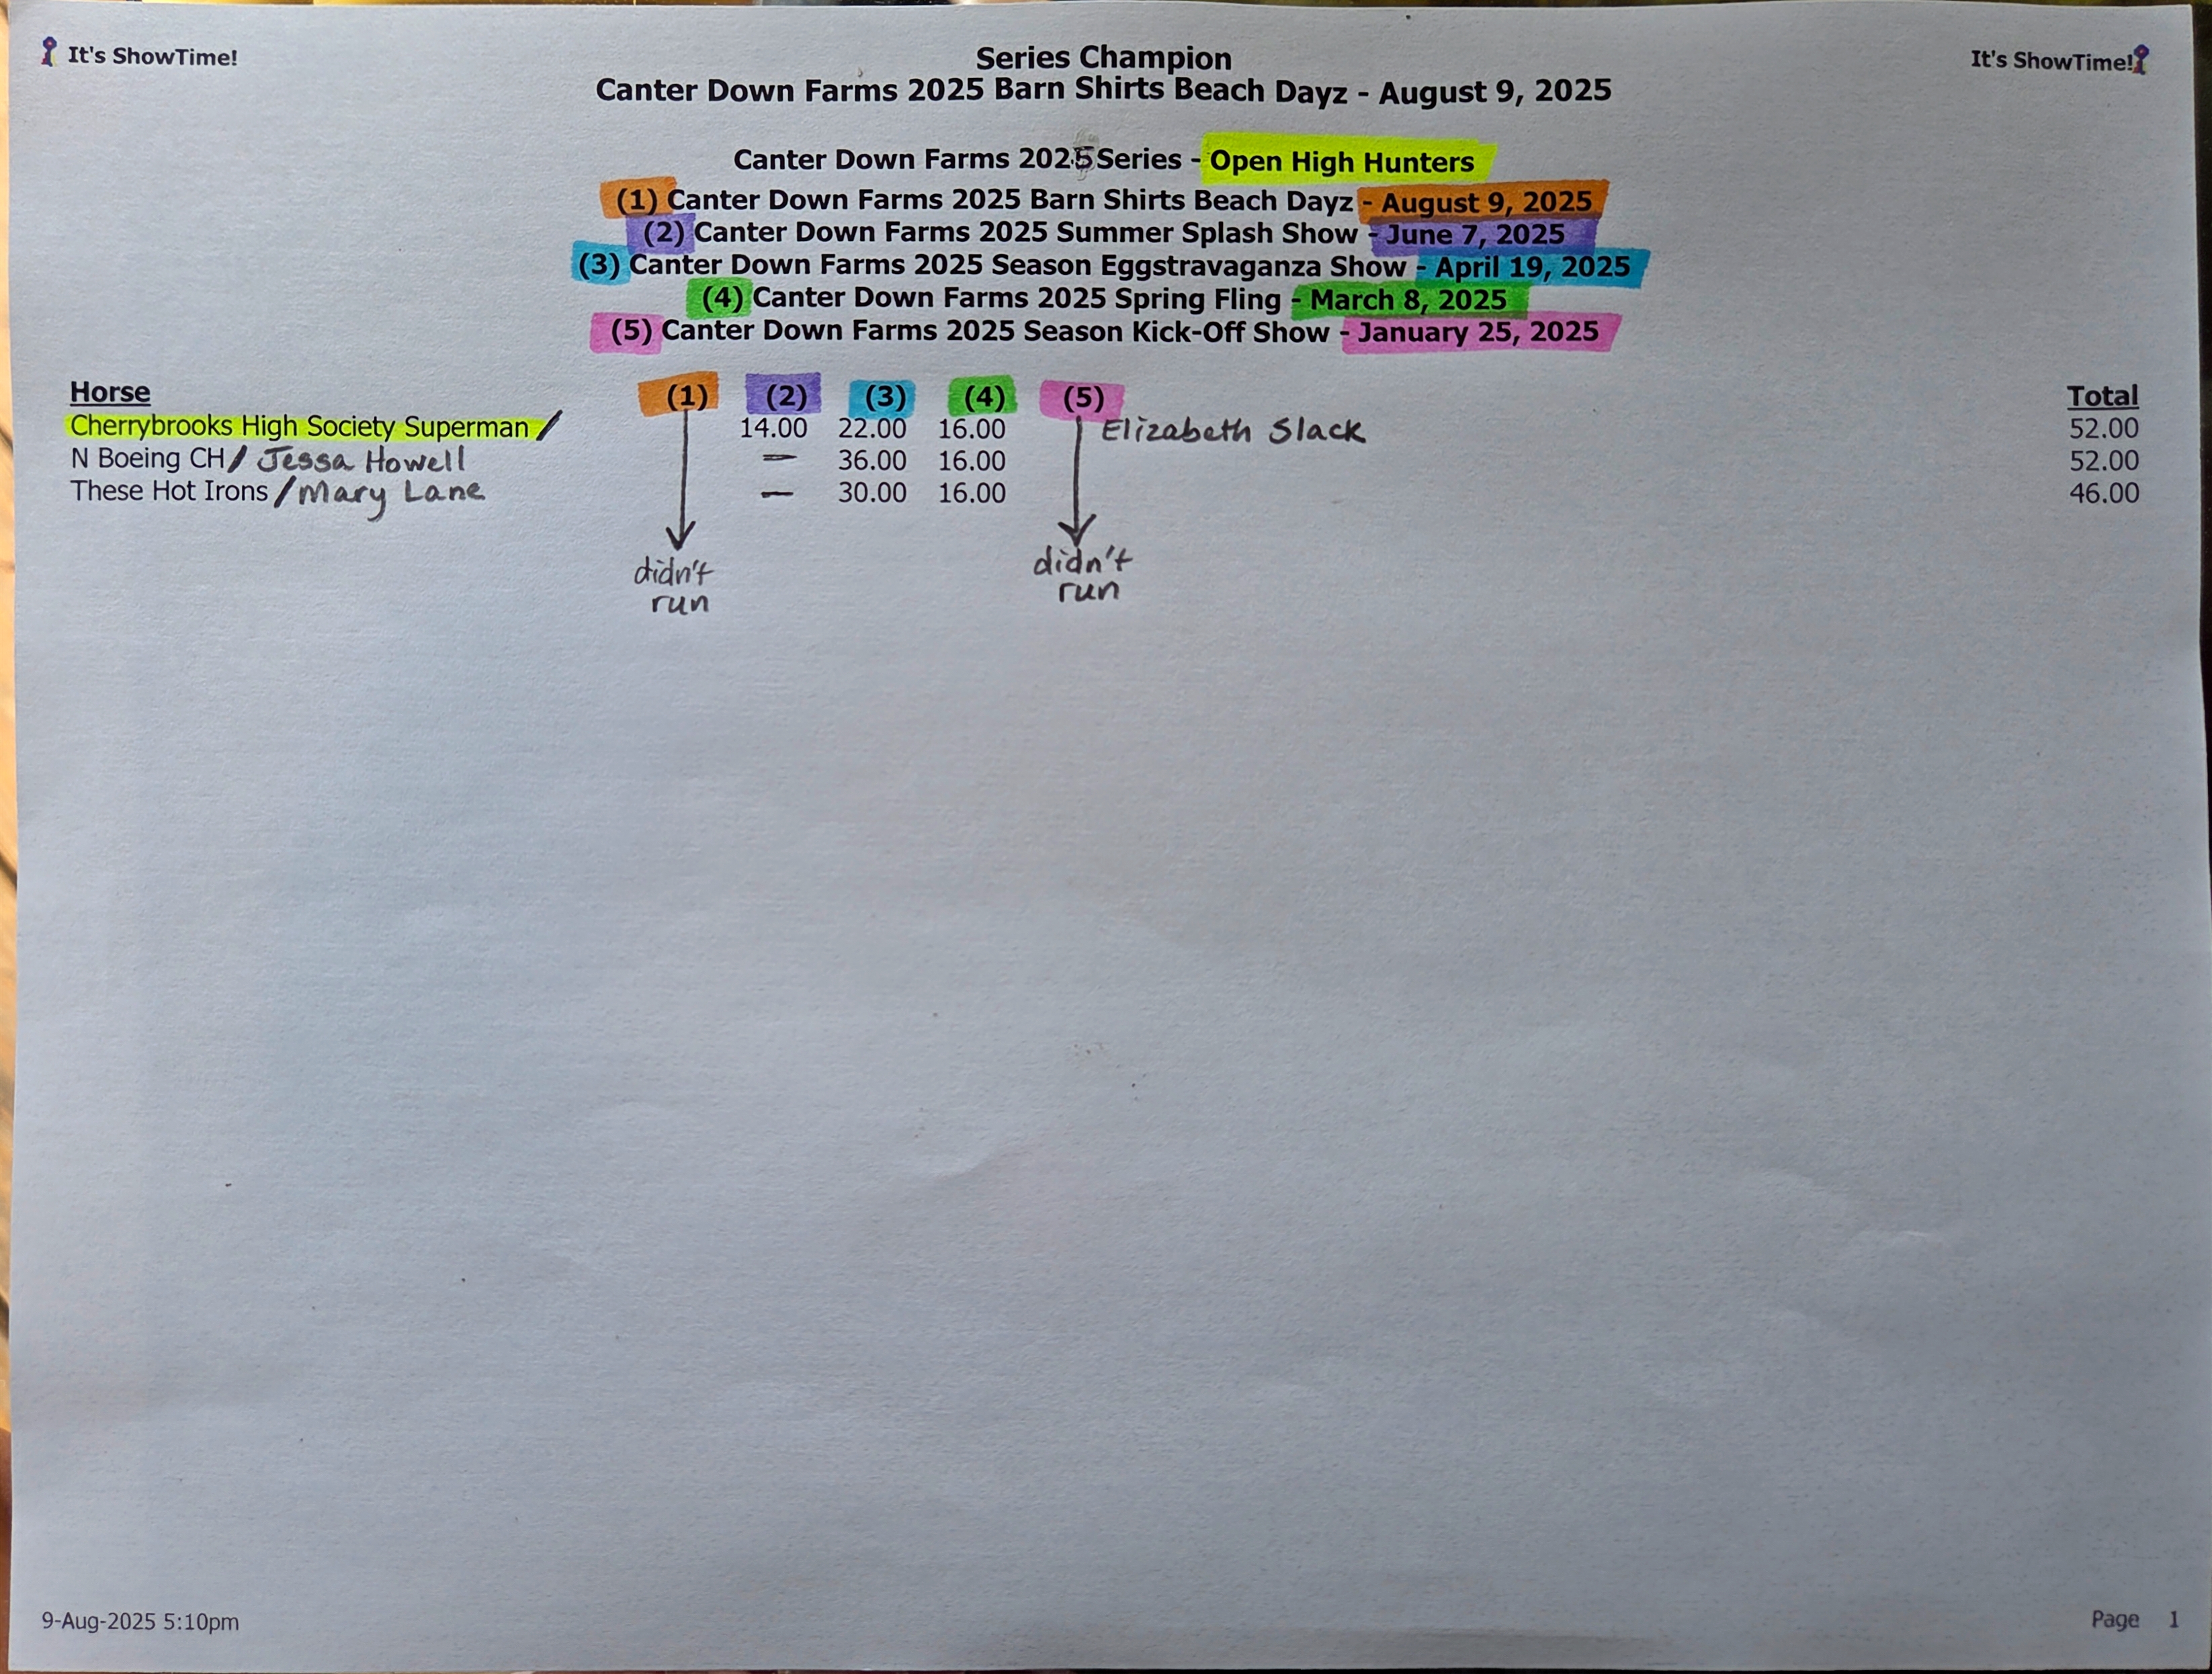 It's ShowTime!
Series Champion
It's ShowTime!
Canter Down Farms 2025 Barn Shirts Beach Dayz - August 9, 2025
Canter Down Farms 2025 Series - Open High Hunters
(1) Canter Down Farms 2025 Barn Shirts Beach Dayz - August 9, 2025
(2) Canter Down Farms 2025 Summer Splash Show - June 7, 2025
(3) Canter Down Farms 2025 Season Eggstravaganza Show - April 19, 2025
(4) Canter Down Farms 2025 Spring Fling - March 8, 2025
(5) Canter Down Farms 2025 Season Kick-Off Show - January 25, 2025
Horse (1) (2) (3) (4) (5) Total
Cherrybrooks High Society Superman / 14.00 22.00 16.00 Elizabeth Slack 52.00
N Boeing CH / Jessa Howell — 36.00 16.00 52.00
These Hot Irons / Mary Lane — 30.00 16.00 46.00
didn't run
didn't run
9-Aug-2025 5:10pm
Page 1